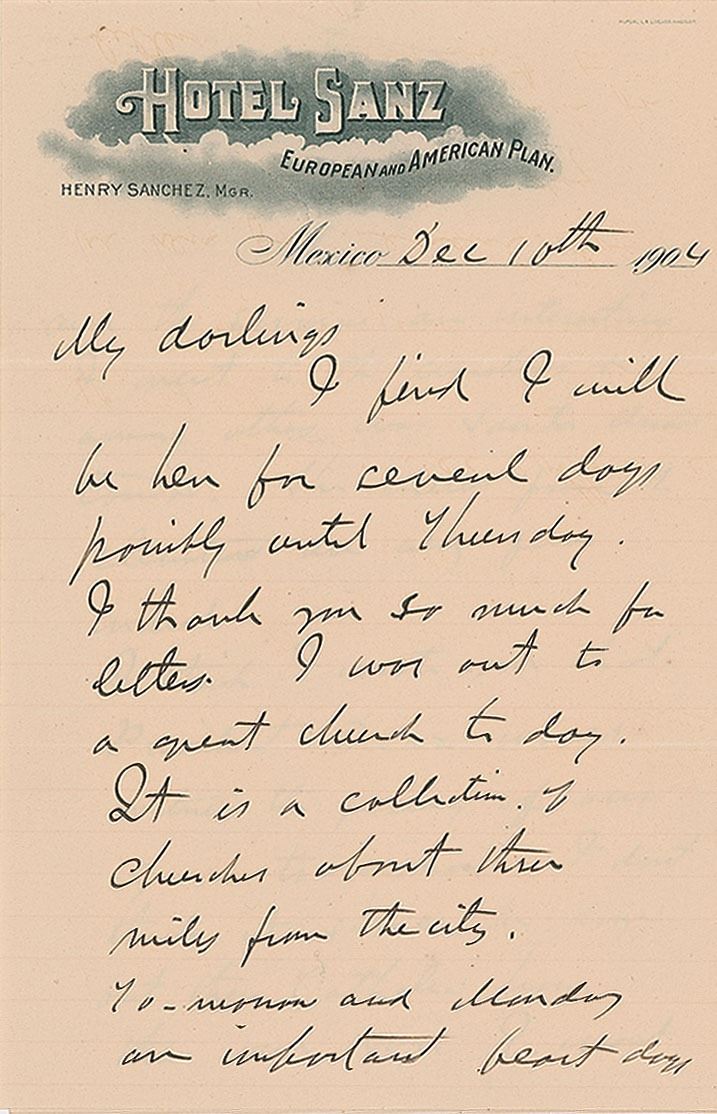 HOTEL SANZ
EUROPEAN AND AMERICAN PLAN.
HENRY SANCHEZ, MGR.
Mexico Dec 10th 1904
My darlings
I find I will
be here for several days
possibly until Thursday.
I thank you so much for
letters. I was out to
a great church to day.
It is a collection of
churches about three
miles from the city.
To-morrow and Monday
are important feast days